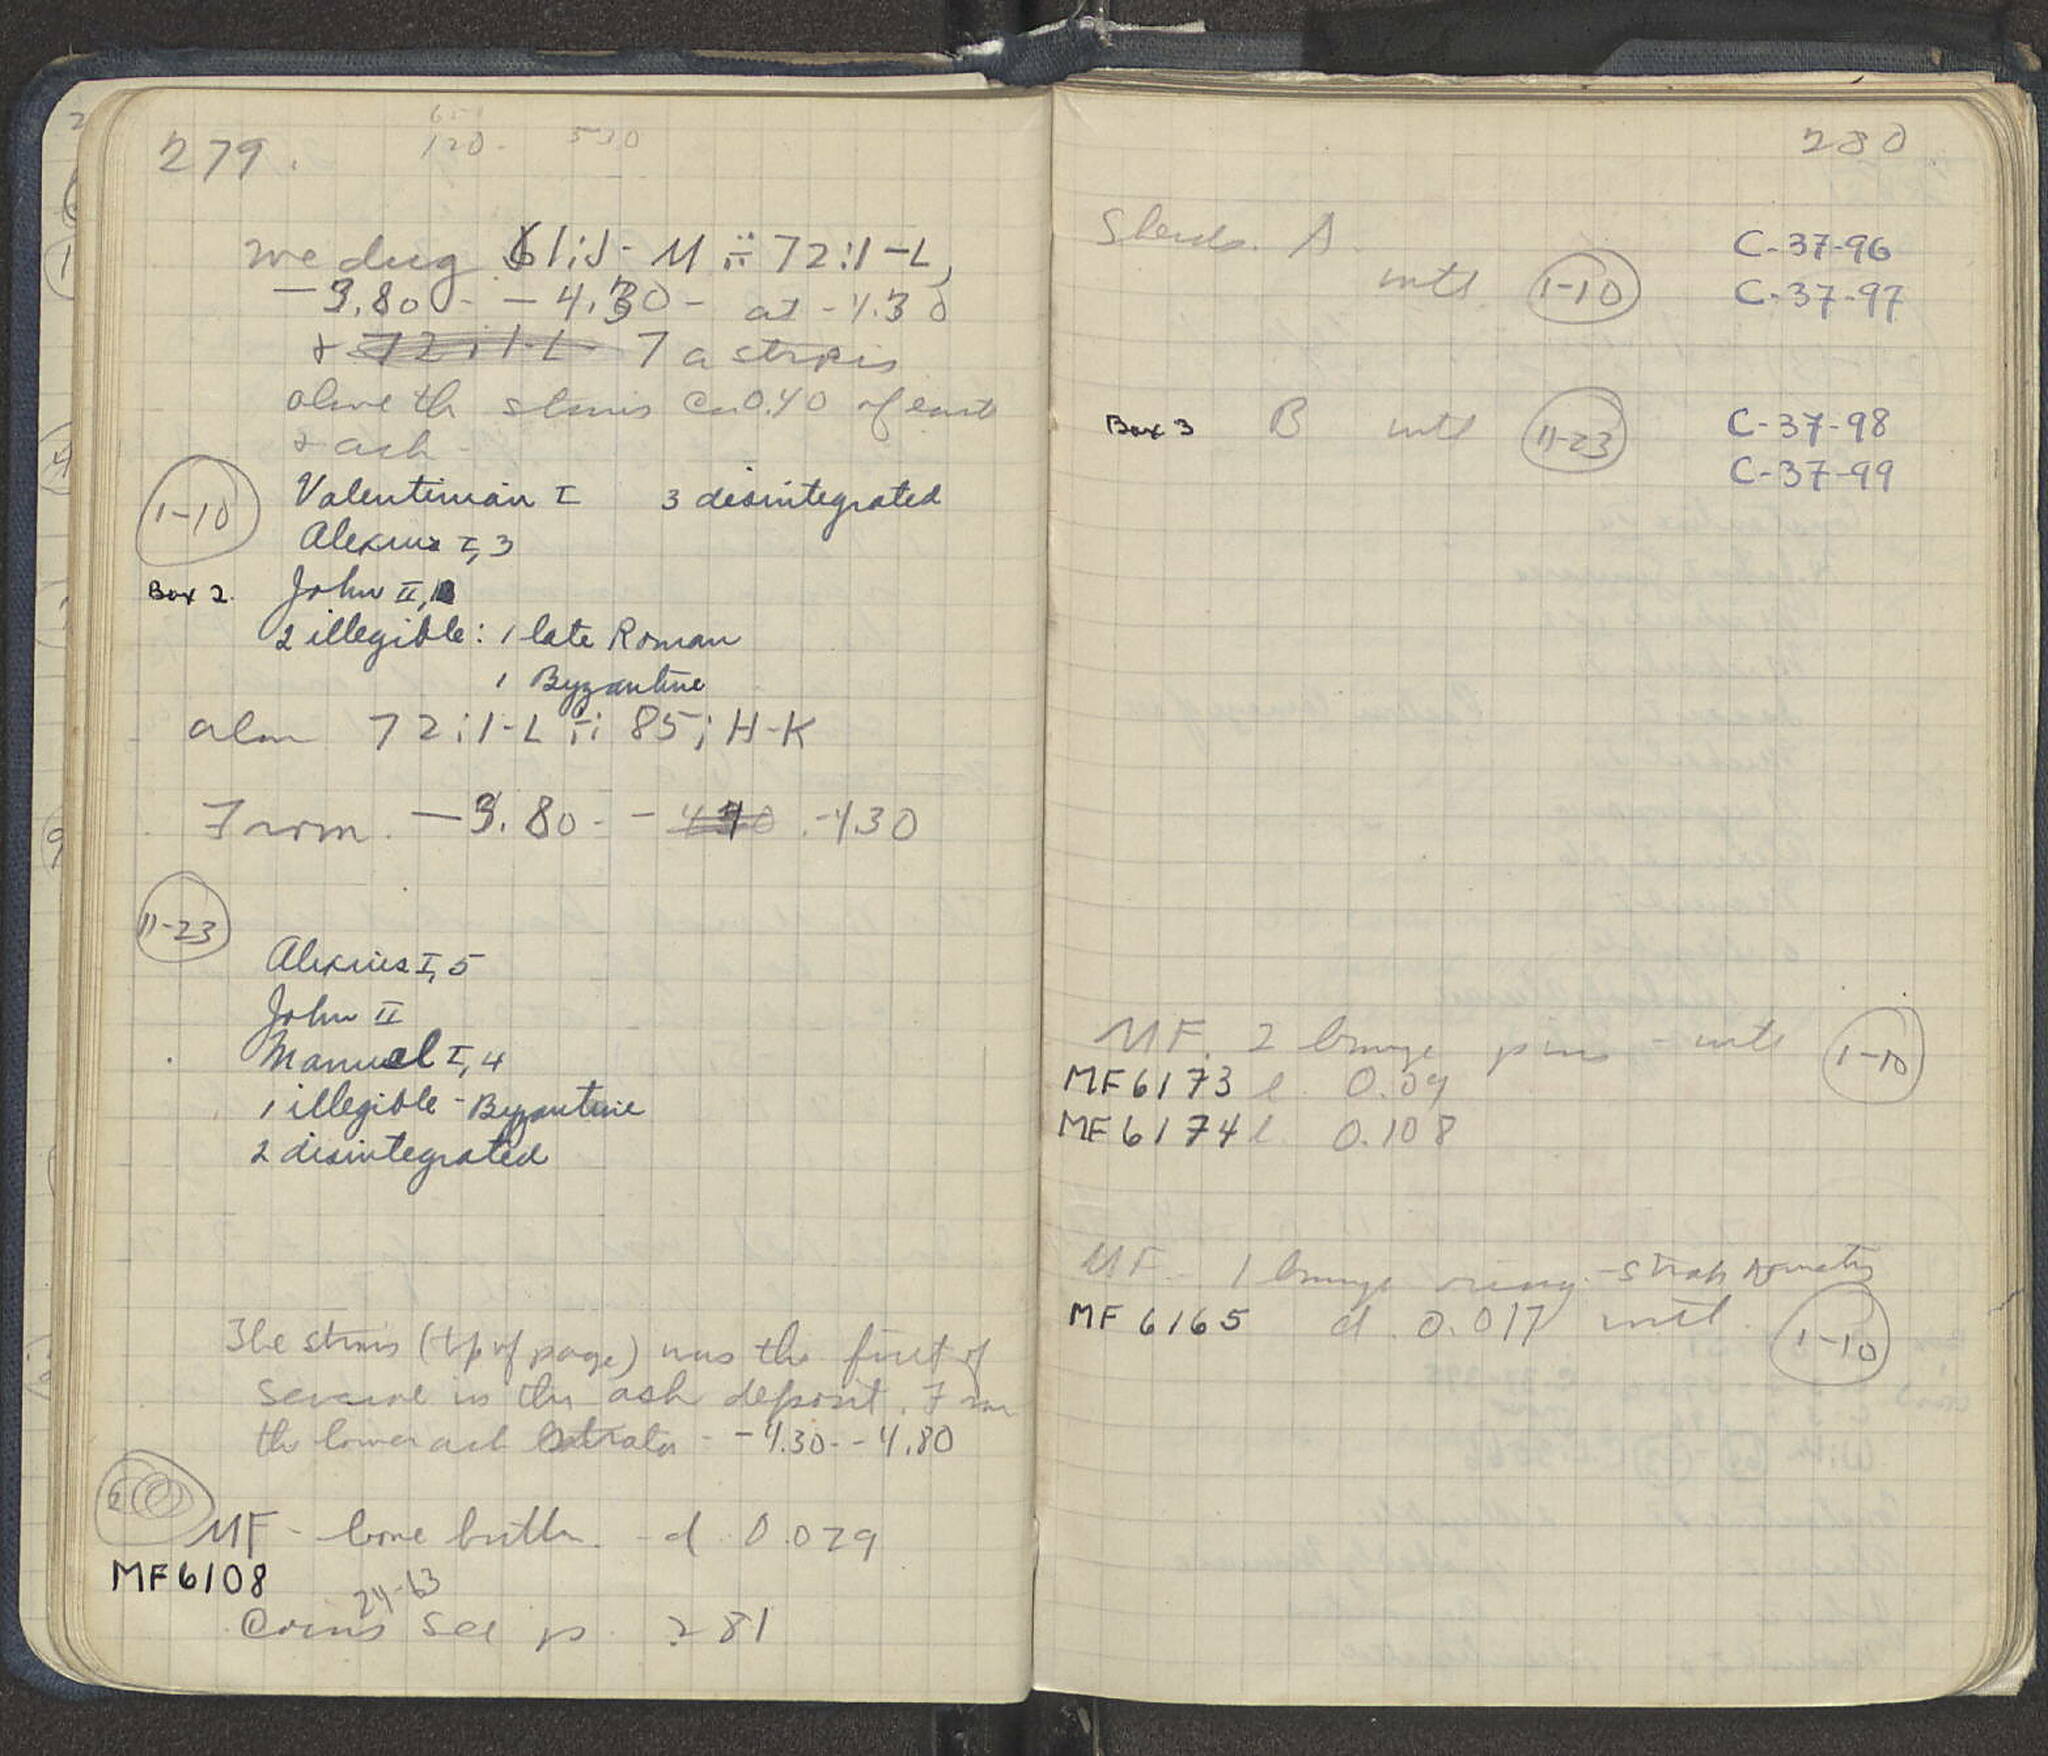 279.
120- 530
we dug 61:J-M ÷ 72:I-L,
-3.80 - -4.30 - at -4.30
+ 72:I-L 7 a
above the Ca 0.40 of earth
+ ash -
1-10
Valentinian I 3 disintegrated
Alexius I, 3
Box 2. John II,
2 illegible: 1 late Roman
1 Byzantine
also 72:I-L ÷ 85:H-K
From -3.80 - - -4.30
11-23
Alexius I, 5
John II
Manuel I, 4
1 illegible - Byzantine
2 disintegrated
The (top of page) was the first of
several in the ash deposit. From
the lower ash strata - -4.30 - -4.80
MF - bone - d 0.029
MF6108
24-63
Coins see p. 281
280
Sherds. A.
with 1-10
C-37-96
C-37-97
Box 3 B with 11-23
C-37-98
C-37-99
MF. 2 bronze pins - with 1-10
MF6173 l. 0.09
MF6174 l. 0.108
MF - 1 bronze ring -
MF 6165 d. 0.017 with 1-10